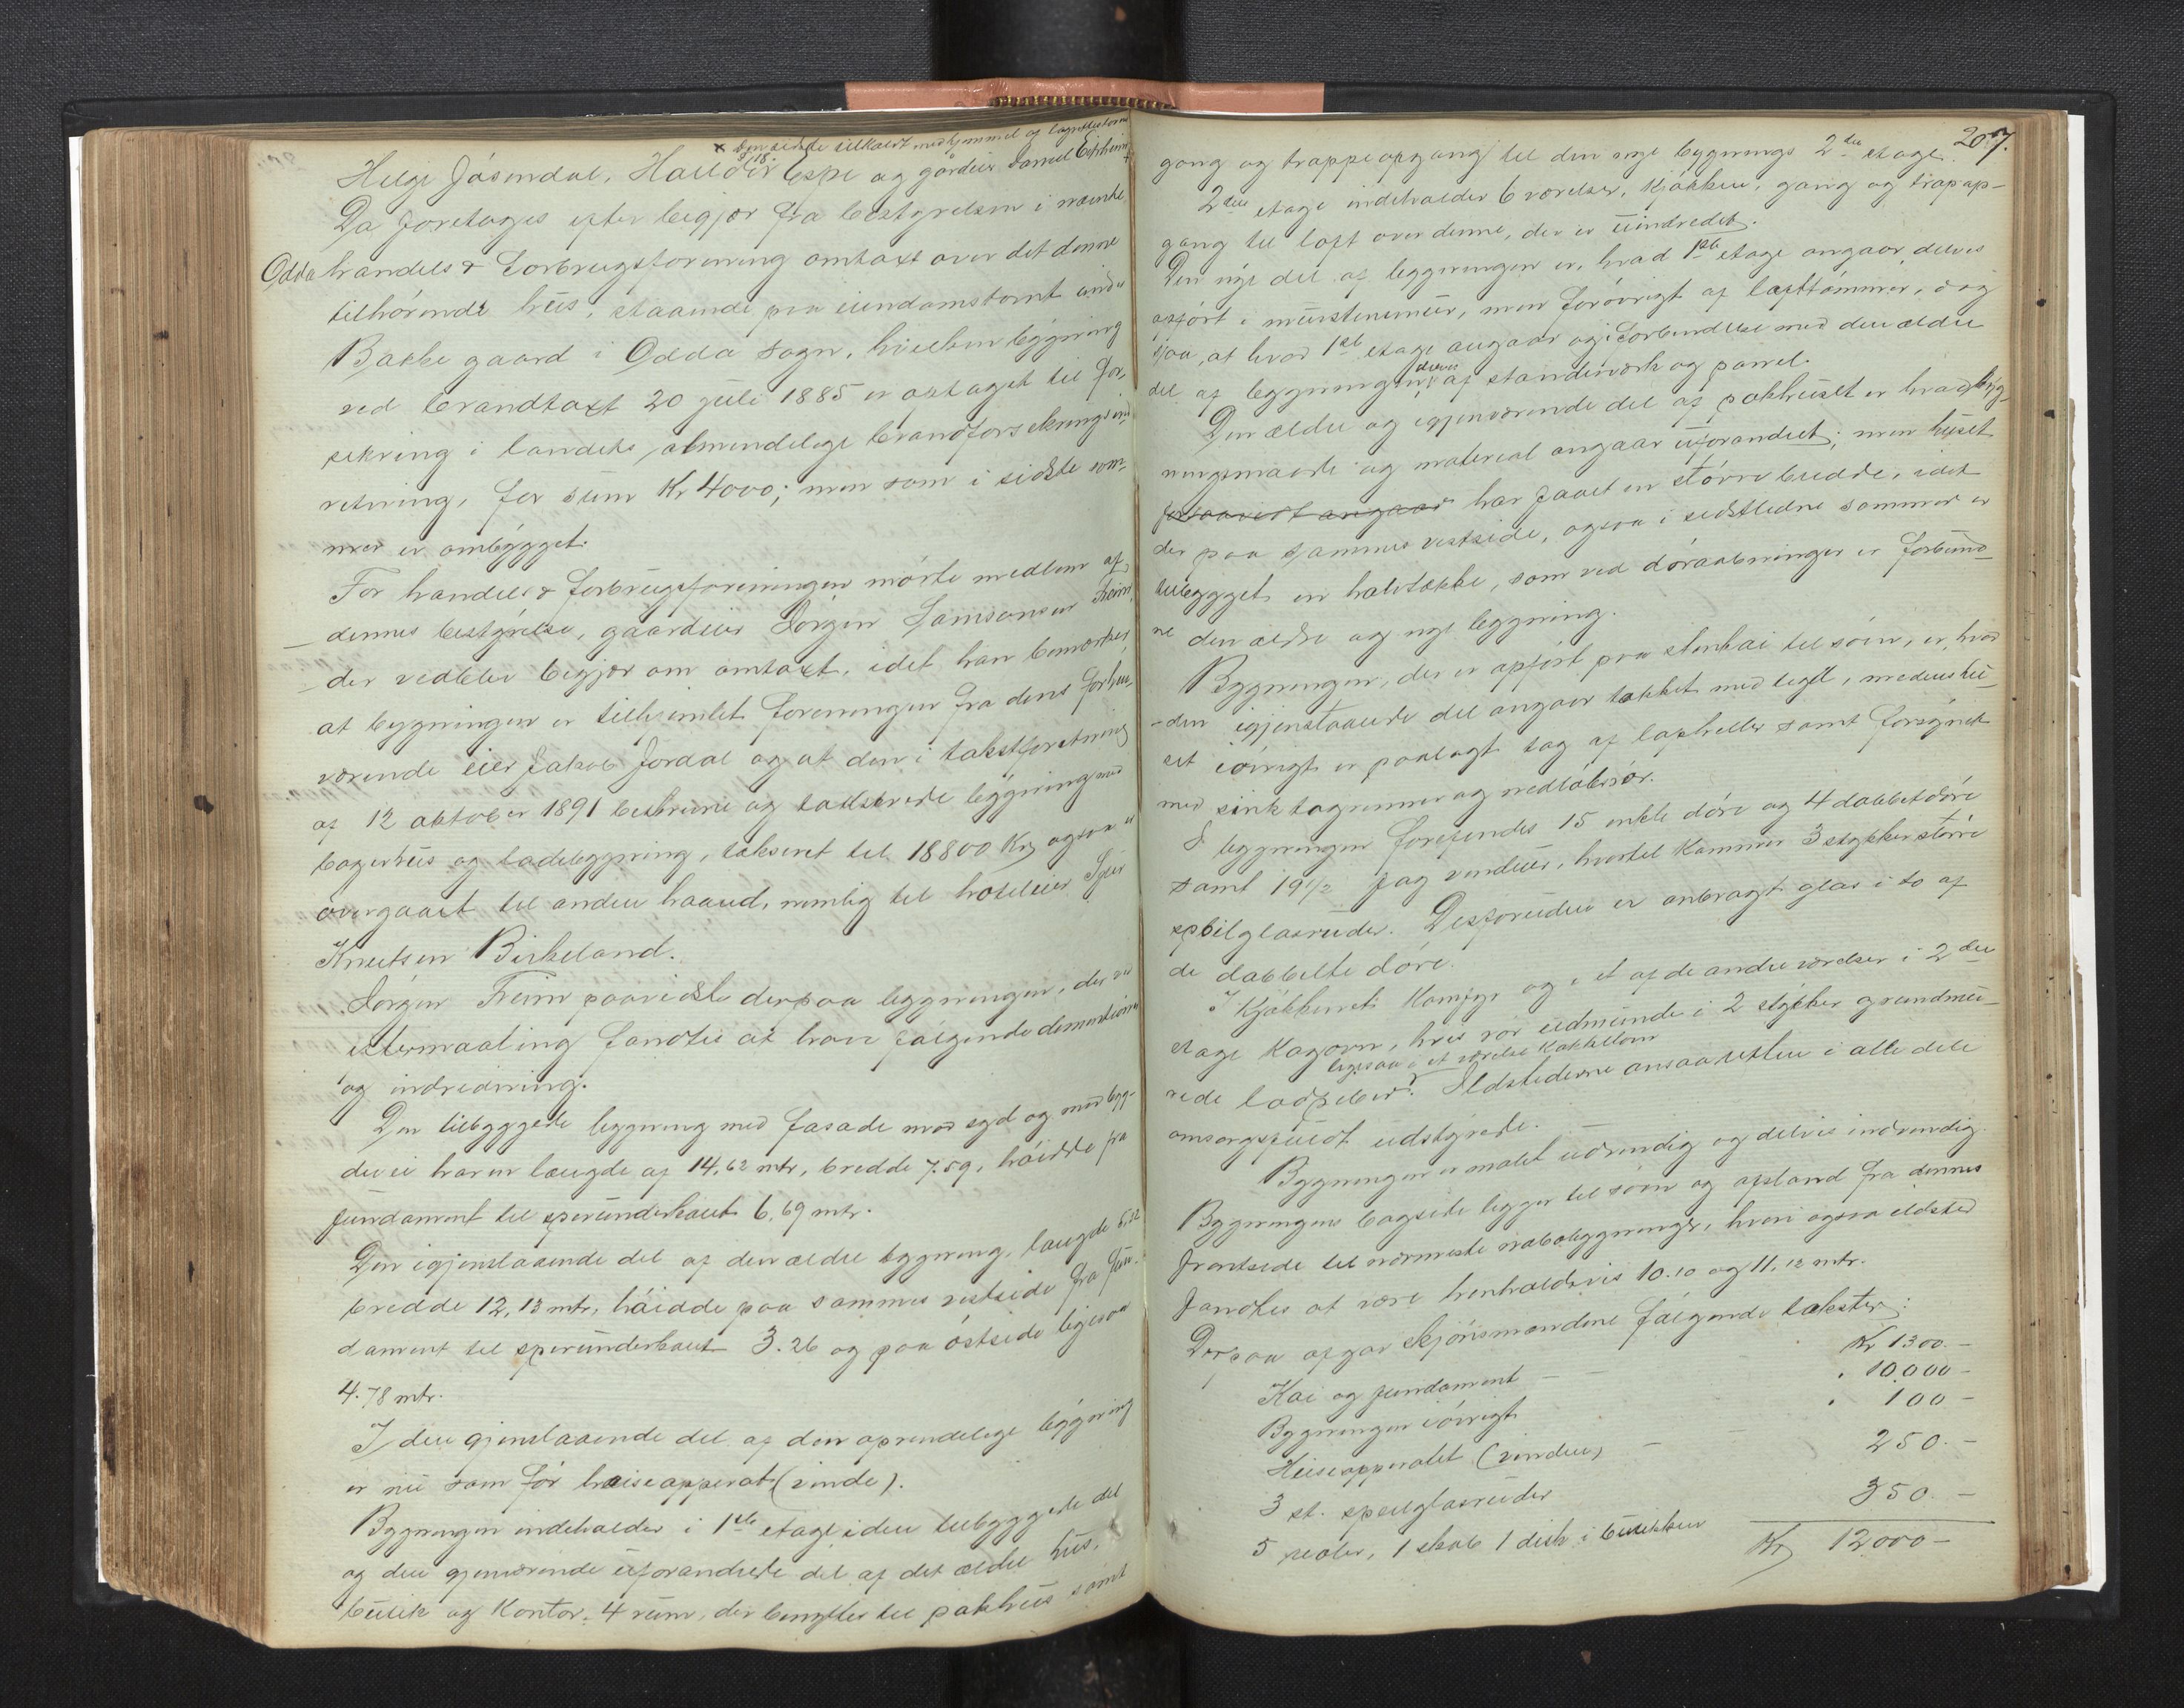 x Den sidste tilkaldt med hjemmel af lagrettesloven
§ 18.
Helge Jåsendal, Halldor Espe og gårdeier Samuel Eipheim x
Da foretoges efter begjær fra bestyrelsen i nævnte
Odda handels & Forbrugsforening omtaxt over det denne
tilhörende hus, staaende paa eiendomstomt under
Bakke gaard i Odda sogn, hvilken bygning
ved brandtaxt 20 juli 1885 er optaget til for-
sikring i landets almindelige brandforsikringsind-
retning, for sum Kr 4000; men som i sidste som-
mer er ombygget.
For handels & forbrugsforeningen mödte medlem af
dennes bestyrelse, gaardeier Jörgen Samsonsen Freim,
der vedblev begjær om omtaxt, idet han bemærker,
at bygningen er tilhjemlet foreningen fra dens forhen-
værende eier Jakob Jordal og at den i takstforretning
af 12 oktober 1891 beskrevne og takserede bygning med
bagerhus og ladebygning, takseret til 18800 Kr, ogsaa er
overgaaet til anden haand, nemlig til hoteleier Sjur
Knutsen Birkeland.
Jörgen Freim paaviste derpaa bygningen, der ved
eftermaaling fandtes at have fölgende dimensioner
og indredning.
Den tilbyggede bygning med fasade mod syd og mod byg-
devei har en længde af 14,62 mtr, bredde 7.59, höidde fra
fundament til sperunderkant 6,69 mtr.
Den igjenstaaende del af den ældre bygning, længde 6,32
bredde 12,13 mtr, höidde paa sammes vestside fra fun-
dament til sperunderkant 3.26 og paa östside ligesaa
4.78 mtr.
I den gjenstaaende del af den oprindelige bygning
er nu som för heiseapperat (vinde).
Bygningen indeholder i 1ste etage i den tilbyggede del
og den gjenværende uforandrede del af det ældre hus,
butik og Kontor, 4 rum, der benyttes til pakhus samt
207.
gang og trappeopgang til den nye bygnings 2den etage.
2den etage indeholder 6 værelser, kjökken, gang og trapop-
gang til loft over denne, der er uindredet.
Den nye del af bygningen er, hvad 1ste etage angaar, delvis
opfört i murstensmur, men forövrigt af lafttömmer, dog
saa, at hvad 1ste etage angaar og i Forbindelse med den ældre
del af bygningen, delvis af standværk og panel.
Den ældre og igjenværende del af pakhuset er hvad byg-
ningsmaade og material angaar uforandret; men huset
forsaavidt angaar har faaet en större bredde, idet
der paa sammes vestside, ogsaa i sidstledne sommer er
tilbygget en halvtække, som ved döraabninger er forbund-
ne den ældre og nye bygning.
Bygningen, der er opfört paa stenkai til söen, er, hvad
den igjenstaaende del angaar tækket med tegl, medens hu-
set iövrigt er paalagt tag af lapheller samt forsynet
med sink tagrenner og nedlöbsrör.
I bygningen forefindes 15 enkle döre og 4 dobbeltdöre
samt 19 1/2 fag vinduer, hvortil kommer 3 stykker större
speilglasruder. Desforuden er anbragt glas i to af
de dobbelte döre.
I Kjökkenet Komfyr og i et af de andre værelser i 2den
etage Kogovn, hvis rör udmunde i 2 stykker grundmu-
ligesaa i et værelse kakkelovn
rede ladpiber. Ildstederne ansaaes ellers i alle dele
omsorgsfuldt udstyrede.
Bygningen er malet udvendig og delvis indvendig.
Bygningens bagside ligger til söen og afstand fra dennes
frontside til nærmeste nabobygninger, hvori ogsaa ildsted
fandtes at være henholdsvis 10.10 og 11.12 mtr.
Derpaa afgav skjönsmændene fölgende takster:
Kai og fundament — Kr 1300.—
Bygningen iövrigt " 10.000—
Heiseapperatet (vinden) — — " 100—
3 st. speilglasruder 250.—
5 reoler, 1 skab 1 disk i butikken 350.—
Kr 12000—